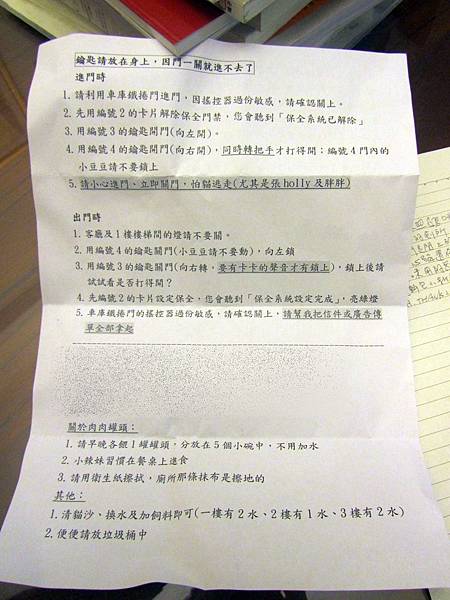 鑰匙請放在身上，因門一關就進不去了
進門時
1. 請利用車庫鐵捲門進門，因搖控器過份敏感，請確認關上。
2. 先用編號 2 的卡片解除保全門禁，您會聽到「保全系統已解除」
3. 用編號 3 的鑰匙開門(向左開)。
4. 用編號 4 的鑰匙開門(向右開)，同時轉把手才打得開；編號 4 門內的
小豆豆請不要鎖上
5. 請小心進門、立即關門，怕貓逃走(尤其是張 holly 及胖胖)
出門時
1. 客廳及 1 樓樓梯間的燈請不要關。
2. 用編號 4 的鑰匙關門(小豆豆請不要動)，向左鎖
3. 用編號 3 的鑰匙關門(向右轉，要有卡卡的聲音才有鎖上)，鎖上後請
試試看是否打得開？
4. 先編號 2 的卡片設定保全，您會聽到「保全系統設定完成」，亮綠燈
5. 車庫鐵捲門的搖控器過份敏感，請確認關上，請幫我把信件或廣告傳
單全部拿起
關於肉肉罐頭：
1. 請早晚各餵 1 罐罐頭，分放在 5 個小碗中，不用加水
2. 小辣妹習慣在餐桌上進食
3. 請用衛生紙擦拭，廁所那條抹布是擦地的
其他：
1. 清貓沙、換水及加飼料即可(一樓有 2 水、2 樓有 1 水、3 樓有 2 水)
2. 便便請放垃圾桶中